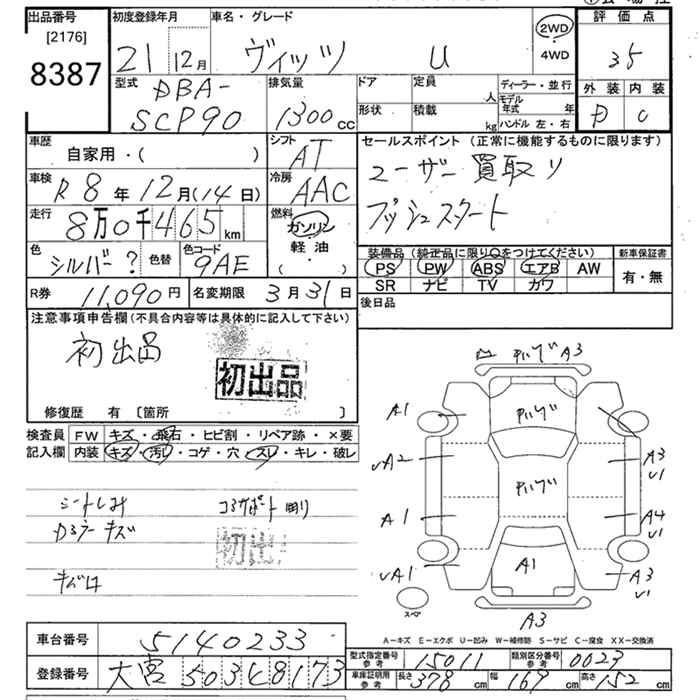 出品番号 初度登録年月 車名・グレード 2WD 評価点
[2176] 21 12月 ヴィッツ U 4WD 35
8387 型式 DBA- 排気量 ドア 定員 人 ディーラー・並行 外装 内装
SCP90 1300cc 形状 積載 kg モデル年式 年 ハンドル 左・右 D C
車歴 自家用・( ) シフト AT セールスポイント (正常に機能するものに限ります)
車検 R8年12月(14日) 冷房 AAC ユーザー買取り
走行 8万0千465km 燃料 ガソリン プッシュスタート
色 シルバー? 色替 色コード 9AE 軽油 ( ) 装備品 (純正品に限り○をつけてください) 新車保証書
PS PW ABS エアB AW 有・無
R券 11,090円 名変期限 3月31日 SR ナビ TV カワ
注意事項申告欄(不具合内容等は具体的に記入して下さい) 後日品
初出品
初出品
修復歴 有 〔箇所 〕
検査員 FW キズ・飛石・ヒビ割・リペア跡・×要
記入欄 内装 キズ・汚レ・コゲ・穴・スレ・キレ・破レ
シートしみ コアサポート
Dミラーキズ
初出
A3
A1
UA2 A3 U1
A1 A4 U1
UA1 A1 A3 U1
スペア A3
A-キズ E-エクボ U-凹み W-補修跡 S-サビ C-腐食 XX-交換済
車台番号 5140233
型式指定番号 参考 15011 類別区分番号 参考 0023
登録番号 大宮 503 8173
車庫証明用 参考 長さ 378cm 幅 169cm 高さ 152cm